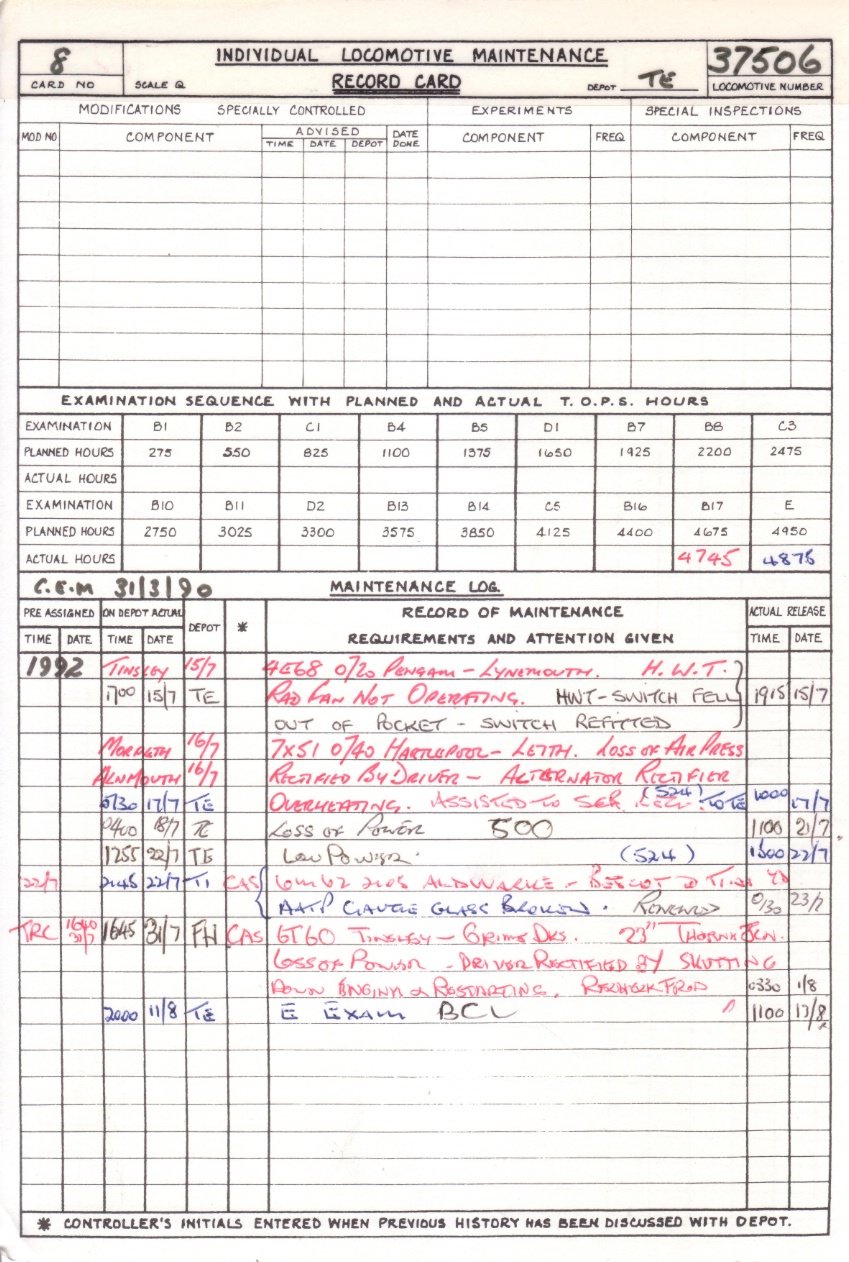 8 INDIVIDUAL LOCOMOTIVE MAINTENANCE 37506
CARD NO SCALE Q RECORD CARD DEPOT TE LOCOMOTIVE NUMBER
MODIFICATIONS SPECIALLY CONTROLLED EXPERIMENTS SPECIAL INSPECTIONS
MOD NO COMPONENT ADVISED DATE DONE COMPONENT FREQ COMPONENT FREQ
TIME DATE DEPOT
EXAMINATION SEQUENCE WITH PLANNED AND ACTUAL T.O.P.S. HOURS
EXAMINATION B1 B2 C1 B4 B5 D1 B7 B8 C3
PLANNED HOURS 275 550 825 1100 1375 1650 1925 2200 2475
ACTUAL HOURS
EXAMINATION B10 B11 D2 B13 B14 C5 B16 B17 E
PLANNED HOURS 2750 3025 3300 3575 3850 4125 4400 4675 4950
ACTUAL HOURS 4745 4875
C.E.M 31/3/90 MAINTENANCE LOG
PRE ASSIGNED ON DEPOT ACTUAL DEPOT * RECORD OF MAINTENANCE ACTUAL RELEASE
TIME DATE TIME DATE REQUIREMENTS AND ATTENTION GIVEN TIME DATE
1992 TINSLEY 15/7 4E68 0/20 PENGAM - LYNEMOUTH. H.W.T.
1700 15/7 TE RAD FAN NOT OPERATING. HWT - SWITCH FELL 1915 15/7
OUT OF POCKET - SWITCH REFITTED
MORPETH 16/7 7X51 0/40 HARTLEPOOL - LEITH. LOSS OF AIR PRESS
ALNMOUTH 16/7 RECTIFIED BY DRIVER - ALTERNATOR RECTIFIER
0730 17/7 TE OVERHEATING. ASSISTED TO (524) TO TE 1000 17/7
0400 18/7 TE LOSS OF POWER 500 1100 21/7
1255 22/7 TE LOW POWER. (524) 1500 22/7
22/7 2145 22/7 TI CAS ALDWARKE - BESCOT
AATP GAUGE GLASS BROKEN. RENEWED 0130 23/7
TRC 1640 31/7 1645 31/7 FH CAS 6T60 TINSLEY - GRIMS DKS. 23" THORNE JCN.
LOSS OF POWER - DRIVER RECTIFIED BY SHUTTING
DOWN ENGINE & RESTARTING. 0330 1/8
2000 11/8 TE E EXAM BCL 1100 17/8
* CONTROLLER'S INITIALS ENTERED WHEN PREVIOUS HISTORY HAS BEEN DISCUSSED WITH DEPOT.